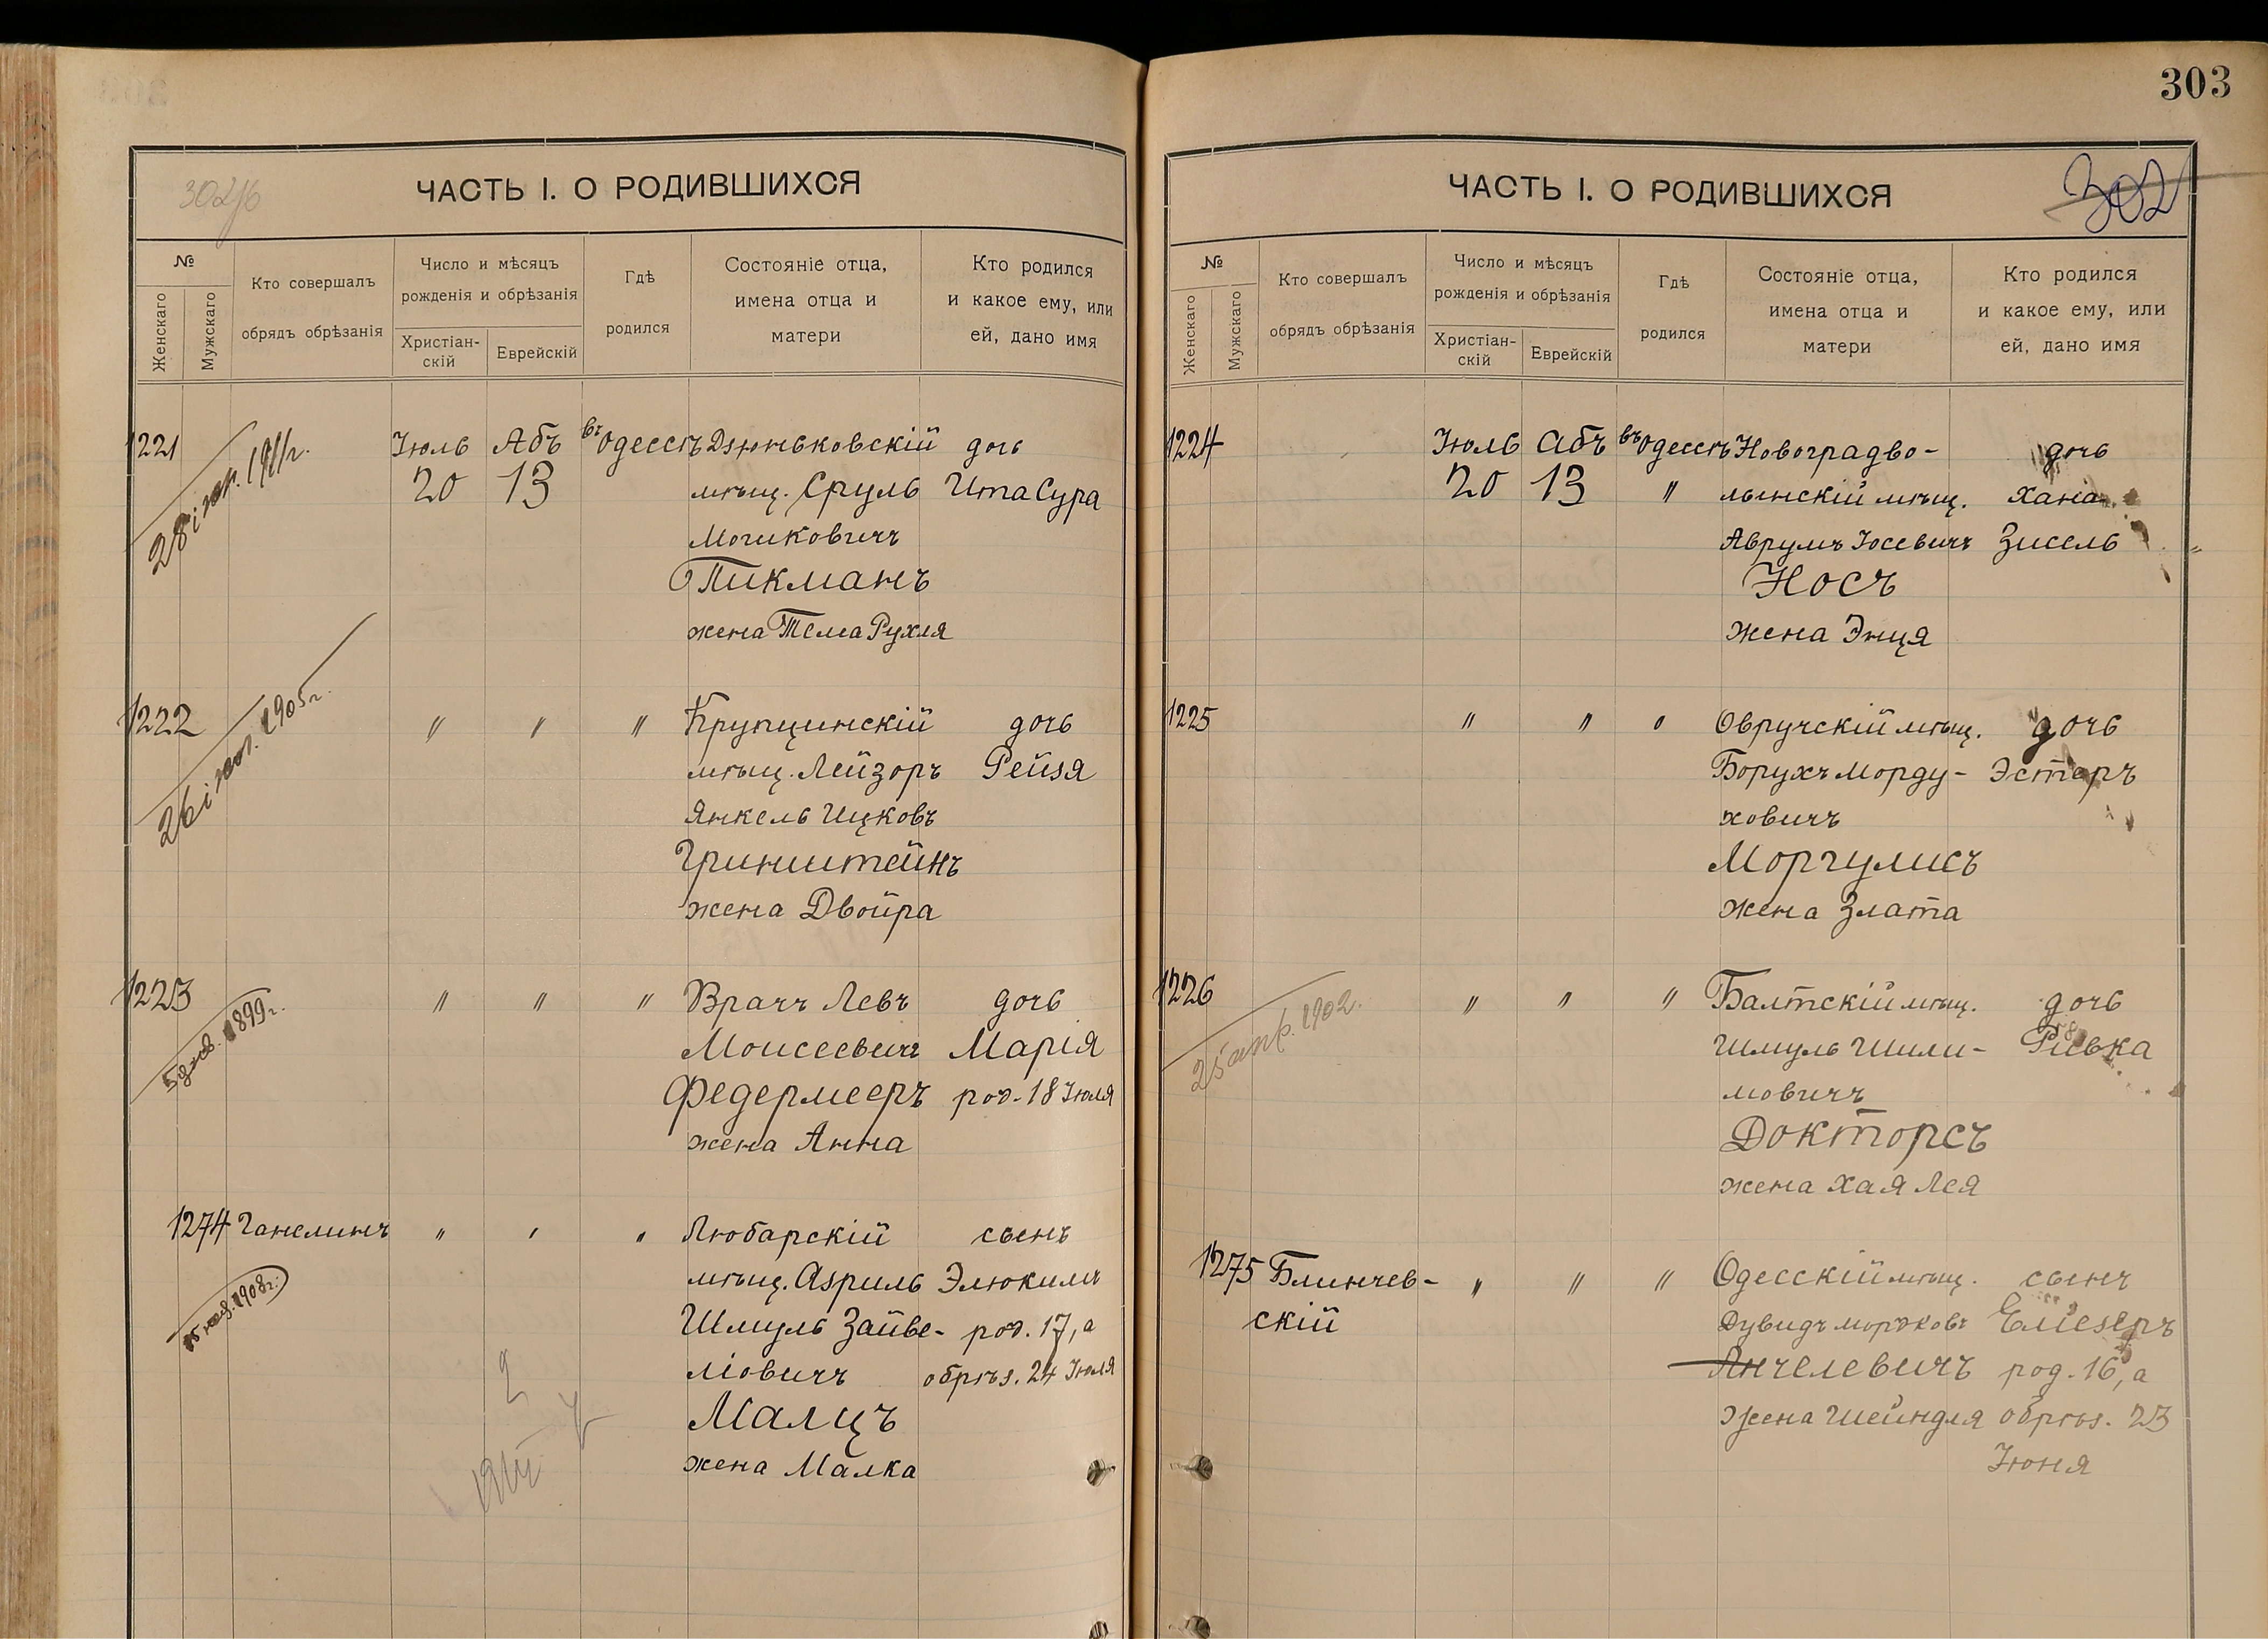 303
302/б
ЧАСТЬ I. О РОДИВШИХСЯ
№
Женскаго
Мужскаго
Кто совершалъ
обрядъ обрѣзанія
Число и мѣсяцъ
рожденія и обрѣзанія
Христіан-
скій
Еврейскій
Гдѣ
родился
Состояніе отца,
имена отца и
матери
Кто родился
и какое ему, или
ей, дано имя
1221
Іюль Абъ въ Одессѣ Дзюньковскій дочь
20 13 мѣщ. Сруль Ита Сура
Мошковичъ
Пикманъ
жена Тема Рухля
1222 " " " Крупцинскій дочь
26 1905 г.
мѣщ. Лейзоръ Рейзя
Янкель Ицковъ
Гринштейнъ
жена Двойра
1223 " " " Врачъ Левъ дочь
1899 г.
Моисеевичъ Марія
Федермееръ род. 18 Іюля
жена Анна
1274 Ганелинъ " " " Любарскій сынъ
1908 г.
мѣщ. Азриль Элюкимъ
Шмуль Зайве- род. 17, а
ліовичъ обрѣз. 24 Іюля
Малцъ
жена Малка
ЧАСТЬ I. О РОДИВШИХСЯ
302
№
Женскаго
Мужскаго
Кто совершалъ
обрядъ обрѣзанія
Число и мѣсяцъ
рожденія и обрѣзанія
Христіан-
скій
Еврейскій
Гдѣ
родился
Состояніе отца,
имена отца и
матери
Кто родился
и какое ему, или
ей, дано имя
1224 Іюль Абъ въ Одессѣ Новоградво- дочь
20 13 " лынскій мѣщ. Хана
Аврумъ Іосевичъ Зисель
Носъ
жена Энця
1225 " " " Овручскій мѣщ. дочь
Борухъ Морду- Эстеръ
ховичъ
Моргулисъ
жена Злата
1226 " " " Балтскій мѣщ. дочь
25 апр. 1902.
Шмуль Шили- Ривка
мовичъ
Докторсъ
жена Хая Лея
1275 Блинчев- " " " Одесскій мѣщ. сынъ
скій Дувидъ Мордковъ Еліезеръ
Анчелевичъ род. 16, а
жена Шейндля обрѣз. 23
Іюня